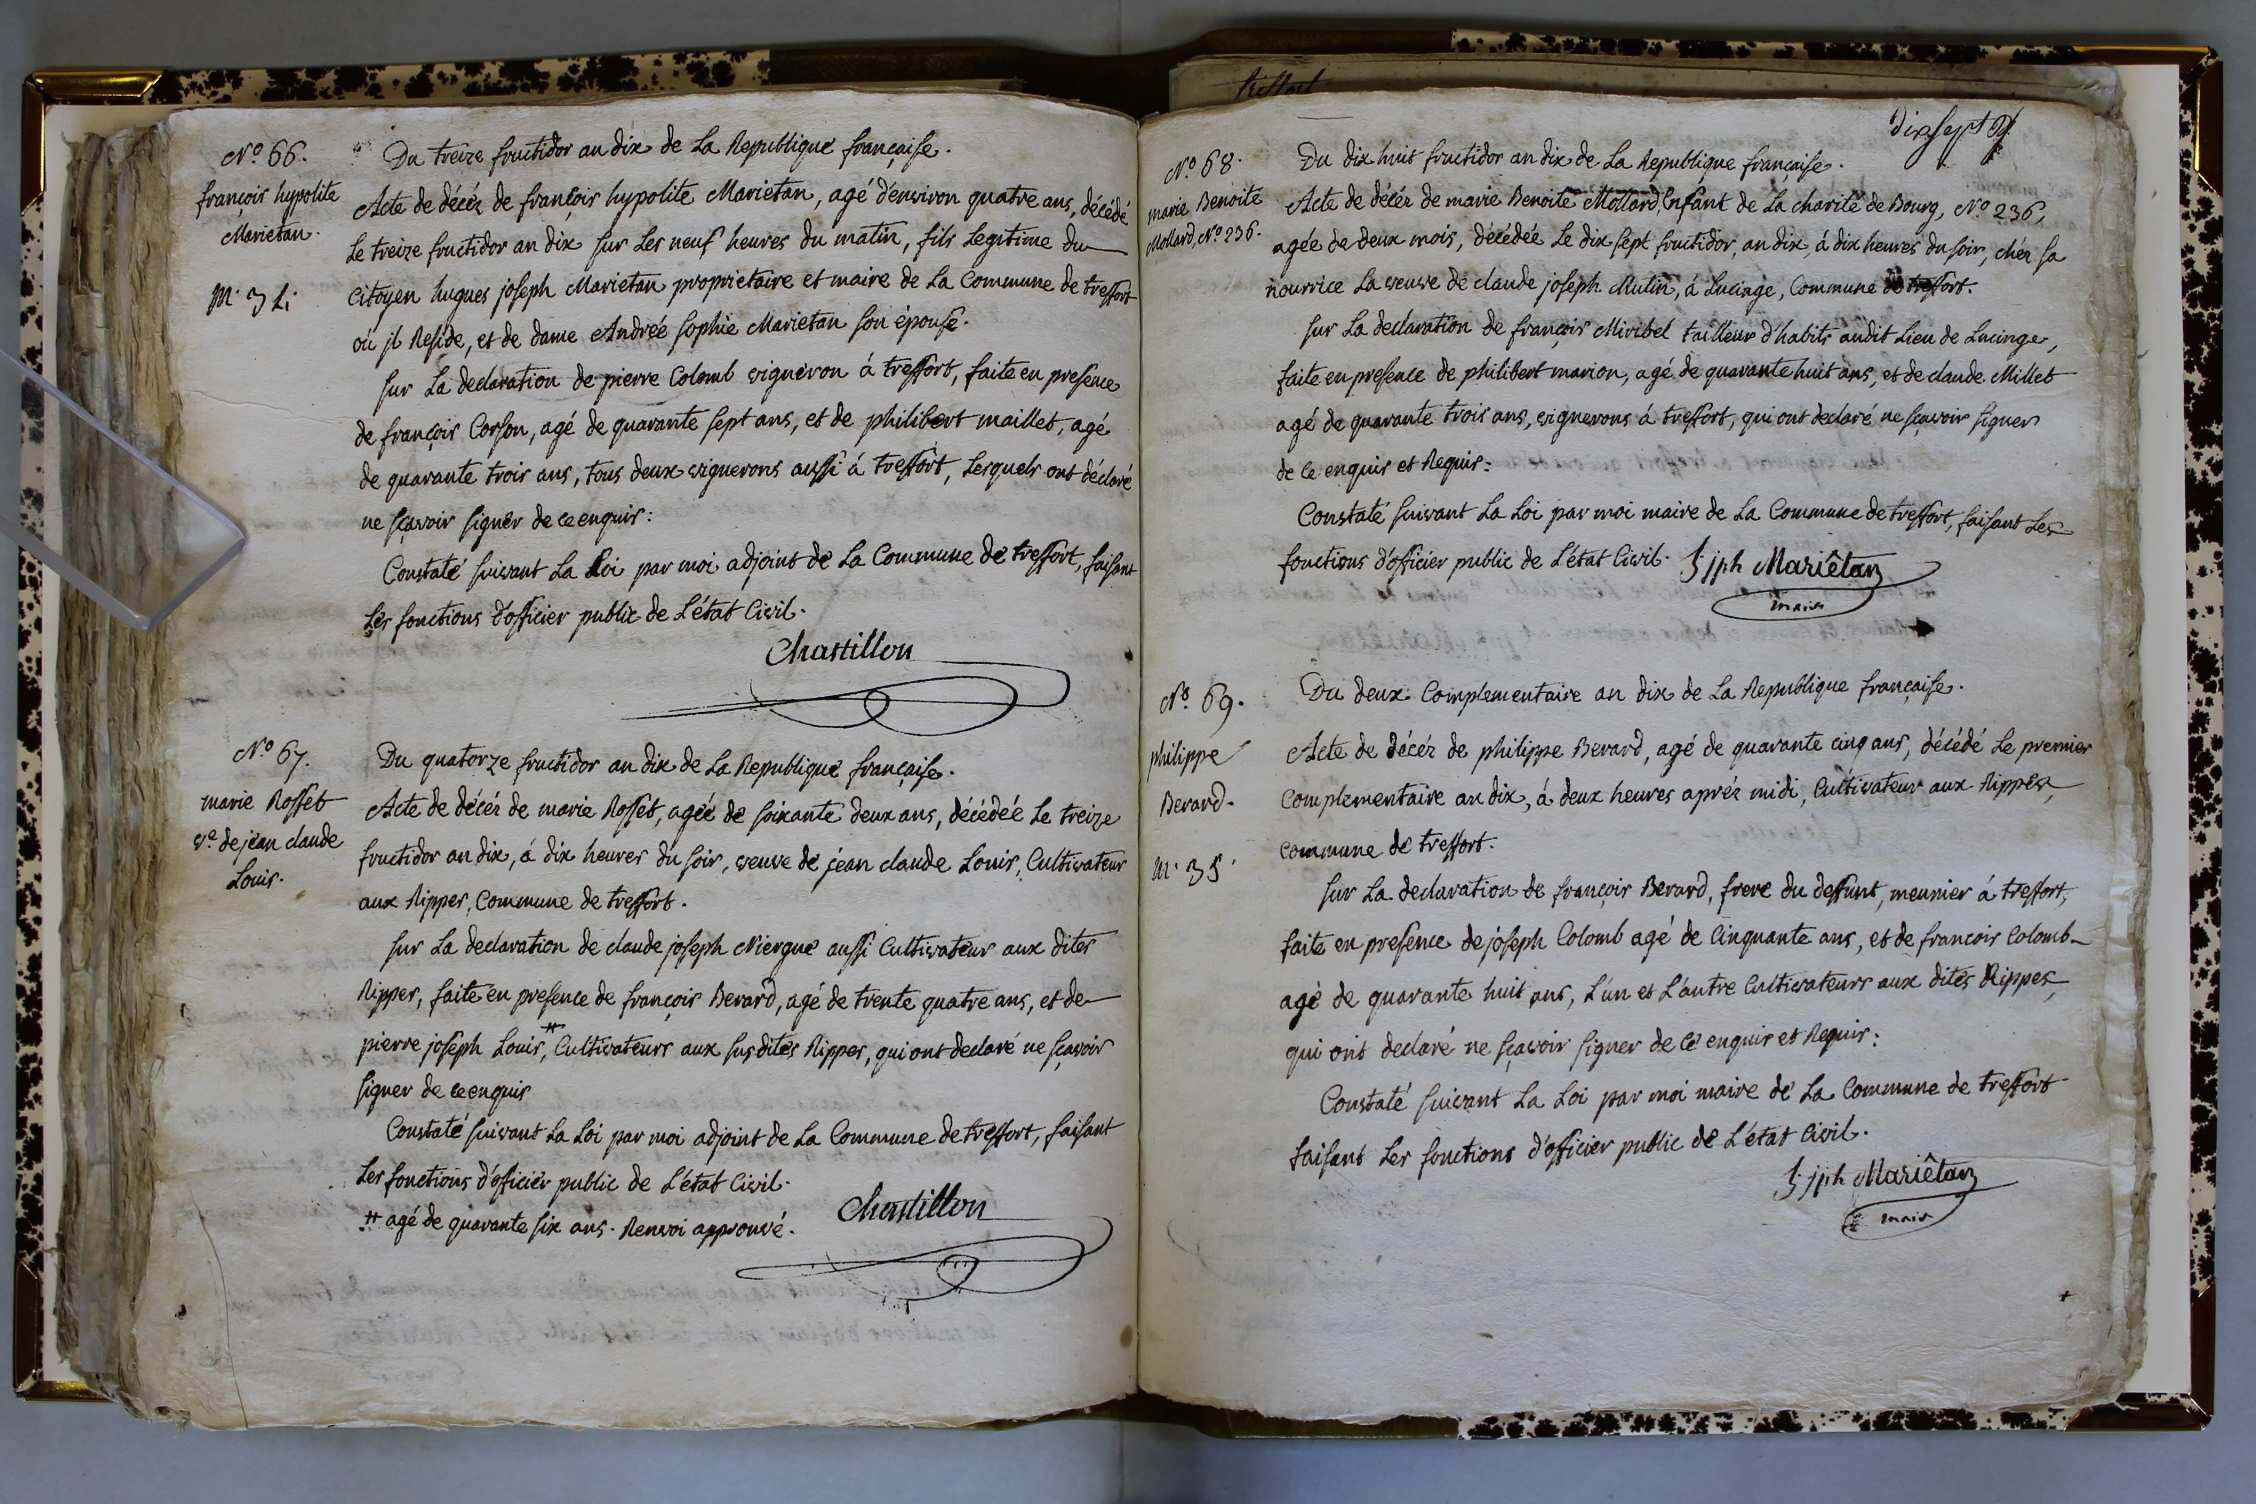 N.o 66.
françois hypolite
Marietan.
M. 34.
Du treize fructidor an dix de La Republique française.
Acte de décés de françois hypolite Marietan, agé d'environ quatre ans, décédé
Le treize fructidor an dix sur Les neuf heures du matin, fils Legitime du
Citoyen hugues joseph Marietan proprietaire et maire de La Commune de treffort
où jl Reside, et de dame Andrée Sophie Marietan son épouse.
Sur La declaration de pierre Colomb vigneron á treffort, faite en presence
de françois Corson, agé de quarante sept ans, et de philibert maillet, agé
de quarante trois ans, tous deux vignerons aussi á treffort, Lesquels ont déclaré
ne sçavoir signer de ce enquis:
Constaté suivant La Loi par moi adjoint de La Commune de treffort, faisant
Les fonctions d'officier public de L'état Civil.
Chastillon
N.o 67.
marie Rosset
v.e de jean claude
Louis.
Du quatorze fructidor an dix de La Republique française.
Acte de décés de marie Rosset, agée de soixante deux ans, décédée Le treize
fructidor an dix, á dix heures du soir, veuve de jean claude Louis, Cultivateur
aux Rippes, Commune de treffort.
Sur La declaration de claude joseph Niergue aussi Cultivateur aux dites
Rippes, faite en presence de françois Berard, agé de trente quatre ans, et de
pierre joseph Louis, # Cultivateurs aux susdites Rippes, qui ont declaré ne sçavoir
signer de ce enquis
Constaté suivant La Loi par moi adjoint de La Commune de treffort, faisant
Les fonctions d'officier public de L'état Civil.
# agé de quarante six ans. Renvoi approuvé.
Chastillon
treffort
Dix sept
N.o 68.
marie Benoite
Mollard, N.o 236.
Du dix huit fructidor an dix de La Republique française.
Acte de décés de marie Benoite Mollard, Enfant de La charité de Bourg, N.o 236,
agée de deux mois, décédée Le dix sept fructidor, an dix, á dix heures du soir, chés sa
nourrice La veuve de claude joseph Mulin, á Lucinge, Commune de treffort.
Sur La declaration de françois Miribel tailleur d'habits audit Lieu de Lucinge,
faite en presence de philibert marion, agé de quarante huit ans, et de claude Millet
agé de quarante trois ans, vignerons á treffort, qui ont declaré ne sçavoir signer
de ce enquis et Requis:
Constaté suivant La Loi par moi maire de La Commune de treffort, faisant Les
fonctions d'officier public de L'état Civil. h jph Mariêtan
maire
N.o 69.
philippe
Berard.
M. 35.
Du deux Complementaire an dix de La Republique française.
Acte de décés de philippe Berard, agé de quarante cinq ans, décédé Le premier
Complementaire an dix, á deux heures aprés midi, Cultivateur aux Rippes,
commune de treffort.
Sur La declaration de françois Berard, frere du deffunt, meunier á treffort,
faite en presence de joseph Colomb agé de Cinquante ans, et de françois Colomb
agé de quarante huit ans, L'un et L'autre Cultivateurs aux dites Rippes,
qui ont declaré ne sçavoir signer de ce enquis et Requis:
Constaté suivant La Loi par moi maire de La Commune de treffort
faisant Les fonctions d'officier public de L'état Civil.
h jph Mariêtan
maire